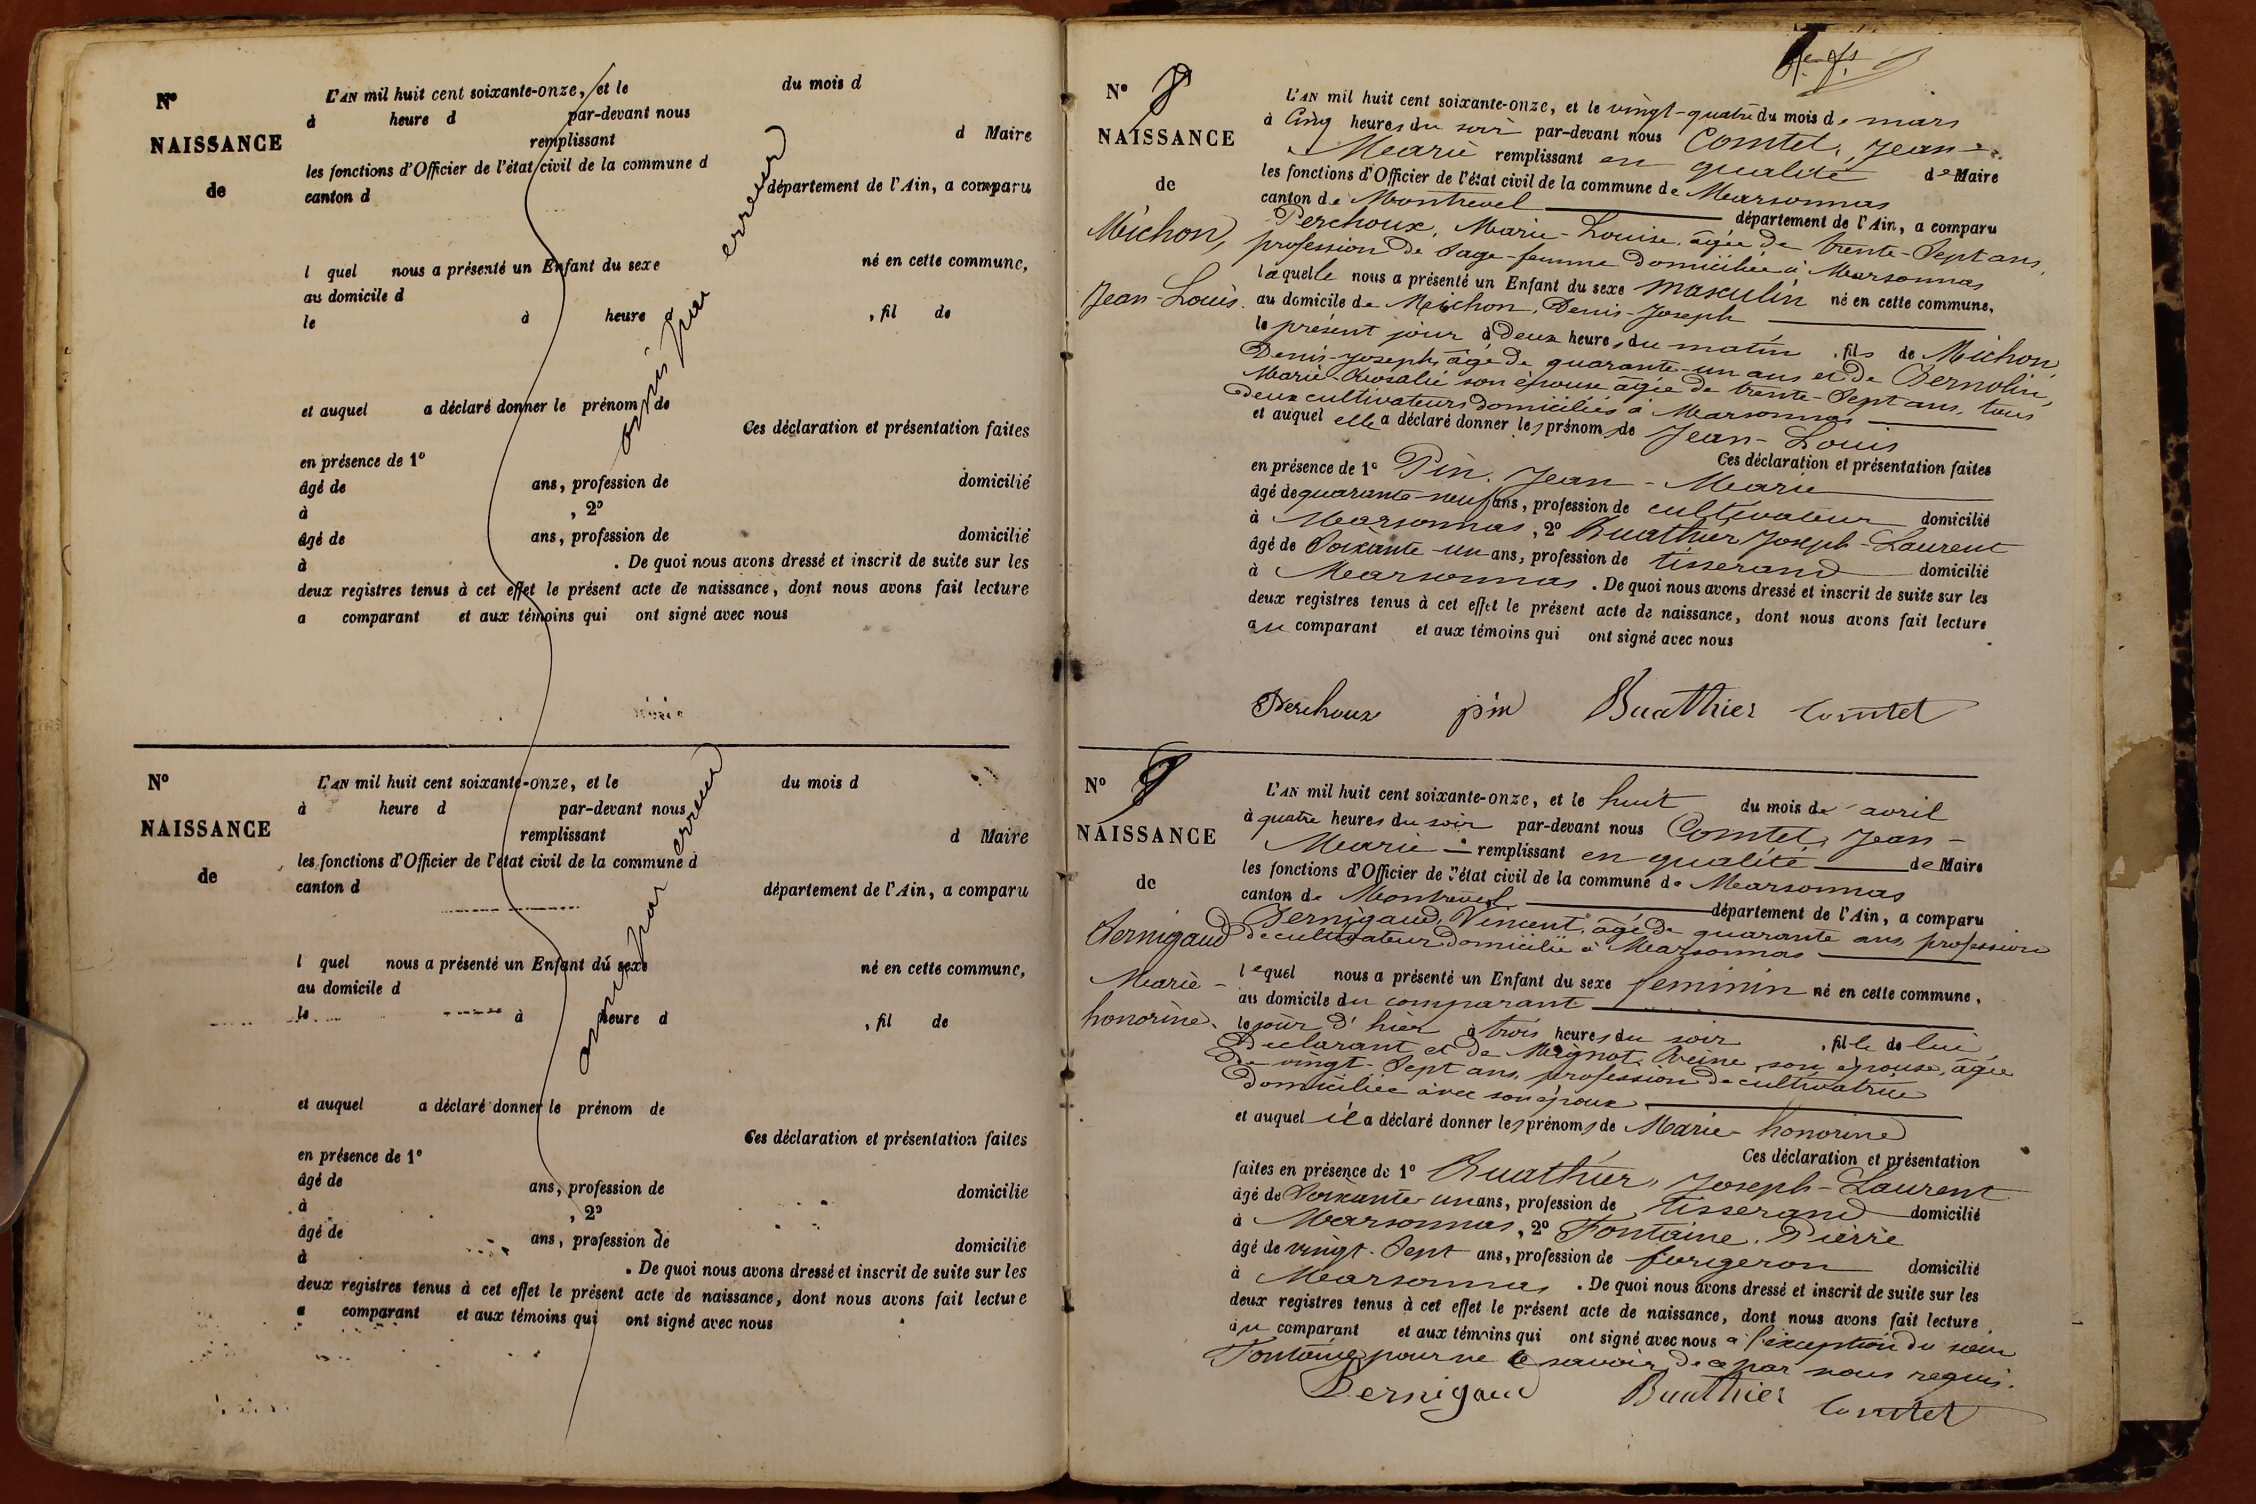 N°
NAISSANCE
de
L'AN mil huit cent soixante-onze, et le du mois d
à heure d par-devant nous
remplissant d Maire
les fonctions d'Officier de l'état civil de la commune d
canton d département de l'Ain, a comparu
l quel nous a présenté un Enfant du sexe né en cette commune,
au domicile d
le à heure d , fil de
et auquel a déclaré donner le prénom de
Ces déclaration et présentation faites
en présence de 1°
âgé de ans, profession de domicilié
à , 2°
âgé de ans, profession de domicilié
à . De quoi nous avons dressé et inscrit de suite sur les
deux registres tenus à cet effet le présent acte de naissance, dont nous avons fait lecture
a comparant et aux témoins qui ont signé avec nous
omis par erreur
N°
NAISSANCE
de
L'AN mil huit cent soixante-onze, et le du mois d
à heure d par-devant nous
remplissant d Maire
les fonctions d'Officier de l'état civil de la commune d
canton d département de l'Ain, a comparu
l quel nous a présenté un Enfant du sexe né en cette commune,
au domicile d
le à heure d , fil de
et auquel a déclaré donner le prénom de
Ces déclaration et présentation faites
en présence de 1°
âgé de ans, profession de domicilié
à , 2°
âgé de ans, profession de domicilié
à . De quoi nous avons dressé et inscrit de suite sur les
deux registres tenus à cet effet le présent acte de naissance, dont nous avons fait lecture
a comparant et aux témoins qui ont signé avec nous
omis par erreur
N° 8
NAISSANCE
de
Michon,
Jean-Louis.
L'AN mil huit cent soixante-onze, et le vingt-quatre du mois de mars
à Cinq heures du soir par-devant nous Comtet, Jean-
Marie remplissant en qualité de Maire
les fonctions d'Officier de l'état civil de la commune de Marsonnas
canton de Montrevel département de l'Ain, a comparu
Perchoux, Marie-Louise, âgée de trente-Sept ans,
profession de Sage-femme domiciliée à Marsonnas
laquelle nous a présenté un Enfant du sexe masculin né en cette commune,
au domicile de Michon, Denis-Joseph
le présent jour à Deux heures du matin , fils de Michon,
Denis-Joseph, âgé de quarante-un ans et de Bernolin,
Marie-Rosalie son épouse âgée de trente-Sept ans, tous
deux cultivateurs domiciliés à Marsonnas
et auquel elle a déclaré donner les prénoms de Jean-Louis
Ces déclaration et présentation faites
en présence de 1° Pin, Jean-Marie
âgé de quarante-neuf ans, profession de cultivateur domicilié
à Marsonnas, 2° Buathier Joseph-Laurent
âgé de Soixante-un ans, profession de tisserand domicilié
à Marsonnas . De quoi nous avons dressé et inscrit de suite sur les
deux registres tenus à cet effet le présent acte de naissance, dont nous avons fait lecture
au comparant et aux témoins qui ont signé avec nous
Perchoux pin Buathier Comtet
N° 9
NAISSANCE
de
Bernigaud
Marie-
honorine.
L'AN mil huit cent soixante-onze, et le huit du mois de avril
à quatre heures du soir par-devant nous Comtet, Jean-
Marie remplissant en qualité de Maire
les fonctions d'Officier de l'état civil de la commune de Marsonnas
canton de Montrevel département de l'Ain, a comparu
Bernigaud, Vincent, âgé de quarante ans, profession
de cultivateur domicilié à Marsonnas
lequel nous a présenté un Enfant du sexe féminin né en cette commune,
au domicile du comparant
le jour d'hier à trois heures du soir , fille de lui
Déclarant et de Mignot, Reine, son épouse, âgée
de vingt-Sept ans, profession de cultivatrice
domiciliée avec son époux
et auquel il a déclaré donner les prénoms de Marie-honorine
Ces déclaration et présentation
faites en présence de 1° Buathier, Joseph-Laurent
âgé de Soixante-un ans, profession de tisserand domicilié
à Marsonnas, 2° Fontaine, Pierre
âgé de vingt-Sept ans, profession de forgeron domicilié
à Marsonnas . De quoi nous avons dressé et inscrit de suite sur les
deux registres tenus à cet effet le présent acte de naissance, dont nous avons fait lecture
au comparant et aux témoins qui ont signé avec nous à l'exception du sieur
Fontaine pour ne le savoir, de ce par nous requis.
Bernigaud Buathier Comtet